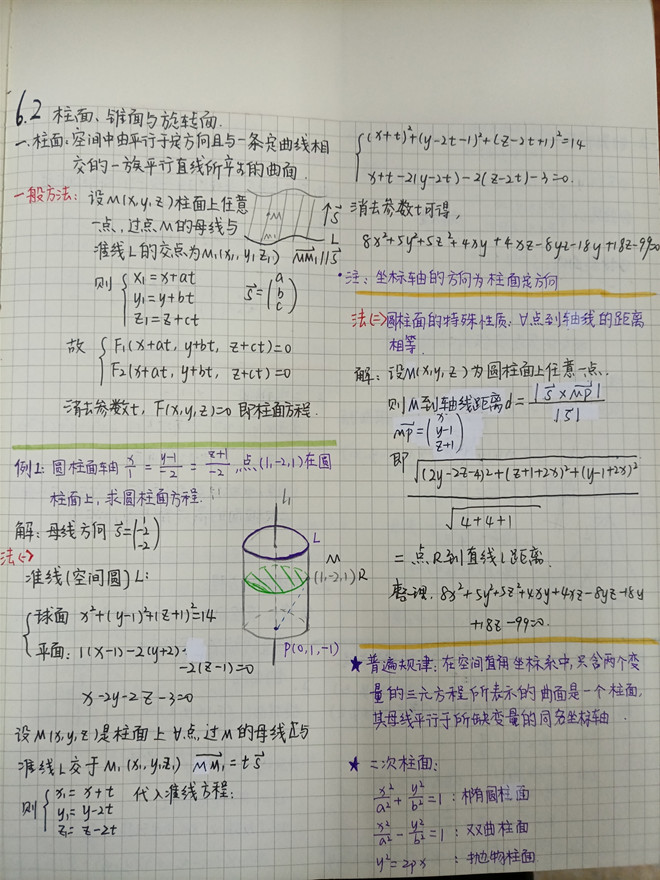 6.2 柱面、锥面与旋转面.
一.柱面:空间中由平行于定方向且与一条定曲线相
交的一族平行直线所产生的曲面.
一般方法:设M(x,y,z)柱面上任意
一点,过点M的母线与
准线L的交点为M₁(x₁,y₁,z₁) MM₁∥s
M
↑s
L
则 { x₁=x+at
y₁=y+bt
z₁=z+ct
s=(a b c)
故 { F₁(x+at, y+bt, z+ct)=0
F₂(x+at, y+bt, z+ct)=0
消去参数t, F(x,y,z)=0 即柱面方程.
例1:圆柱面轴 x/1 = (y-1)/-2 = (z+1)/-2, 点(1,-2,1)在圆
柱面上,求圆柱面方程.
解:母线方向 s=(1 -2 -2)
法(一)
准线(空间圆)L:
{ 球面 x²+(y-1)²+(z+1)²=14
平面: 1(x-1)-2(y+2)
-2(z-1)=0
x-2y-2z-3=0
L
M
(1,-2,1) R
P(0,1,-1)
设M(x,y,z)是柱面上∀点,过M的母线与
准线L交于M₁(x₁,y₁,z₁) MM₁=ts
则 { x₁=x+t
y₁=y-2t
z₁=z-2t
代入准线方程:
{ (x+t)²+(y-2t-1)²+(z-2t+1)²=14
x+t-2(y-2t)-2(z-2t)-3=0.
消去参数t可得,
8x²+5y²+5z²+4xy+4xz-8yz-18y+18z-99=0
·注:坐标轴的方向为柱面定方向
法(二)圆柱面的特殊性质:∀点到轴线的距离
相等.
解:设M(x,y,z)为圆柱面上任意一点.
则M到轴线距离d=|s×MP|/|s|
MP=(x y-1 z+1)
即 √((2y-2z-4)²+(z+1+2x)²+(y-1+2x)²)
√(4+4+1)
=点R到直线L距离.
整理. 8x²+5y²+5z²+4xy+4xz-8yz-18y
+18z-99=0.
★普遍规律:在空间直角坐标系中,只含两个变
量的三元方程所表示的曲面是一个柱面,
其母线平行于所缺变量的同名坐标轴.
★二次柱面:
x²/a²+y²/b²=1:椭圆柱面
x²/a²-y²/b²=1:双曲柱面
y²=2px :抛物柱面